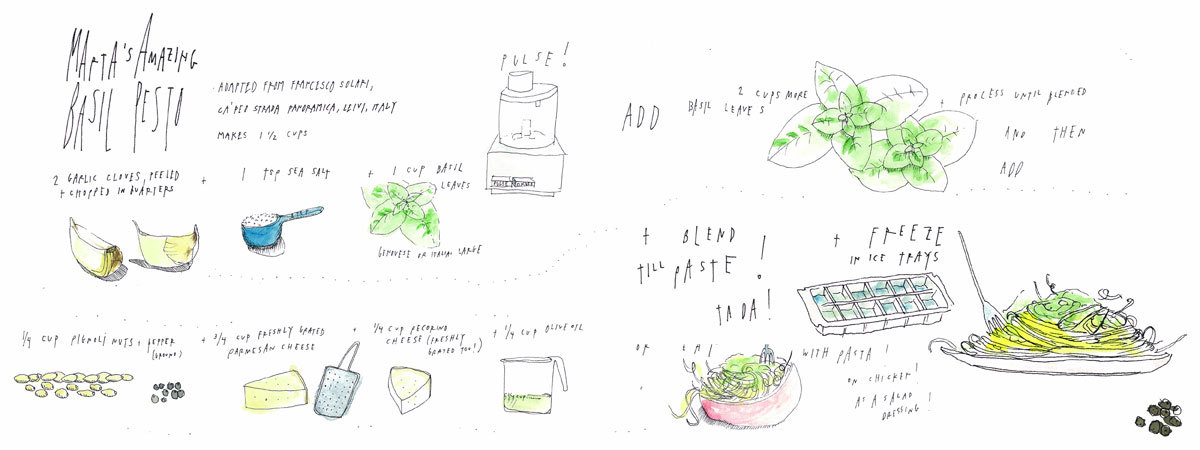 MARTA'S AMAZING
BASIL PESTO
ADAPTED FROM FRANCESCO SOLARI,
CA'PEO STRADA PANORAMICA, LEIVI, ITALY
MAKES 1 1/2 CUPS
2 GARLIC CLOVES, PEELED
+ CHOPPED IN QUARTERS
+ 1 TSP SEA SALT
+ 1 CUP BASIL
LEAVES
GENOVESE OR ITALIAN LARGE
PULSE!
ADD
2 CUPS MORE
BASIL LEAVES
+ PROCESS UNTIL BLENDED
AND THEN
ADD
1/4 CUP PIGNOLI NUTS, PEPPER
(GROUND)
+ 3/4 CUP FRESHLY GRATED
PARMESAN CHEESE
+ 1/4 CUP PECORINO
CHEESE (FRESHLY
GRATED TOO!)
+ 1/4 CUP OLIVE OIL
+ BLEND
TILL PASTE!
TADA!
+ FREEZE
IN ICE TRAYS
OR EAT
WITH PASTA!
ON CHICKEN!
AS A SALAD
DRESSING!